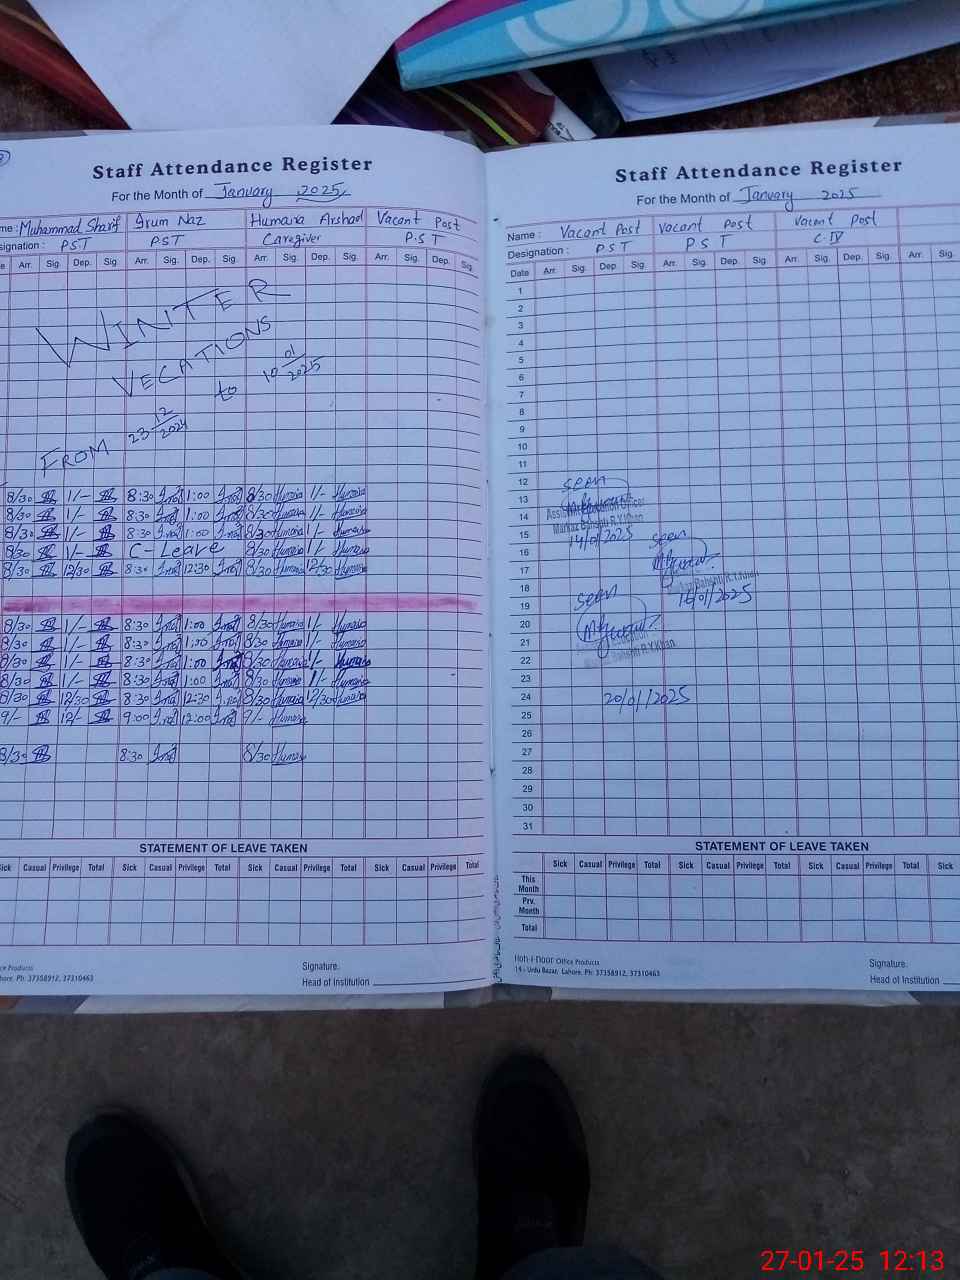 Staff Attendance Register
For the Month of January 2025
me: Muhammad Sharif Irum Naz Humaira Arshad Vacant Post
signation: PST PST Caregiver P.S T
e Arr. Sig. Dep. Sig. Arr. Sig. Dep. Sig. Arr. Sig. Dep. Sig. Arr. Sig. Dep. Sig.
WINITER
VECATIONS
FROM 23 12/2024 to 10 01/2025
8/30 1/- 8:30 1:00 8/30 Humaira 1/- Humaira
8/30 1/- 8:30 1:00 8/30 Humaira 1/- Humaira
8/30 1/- 8:30 1:00 8/30 Humaira 1/- Humaira
8/30 1/- C-Leave 8/30 Humaira 1/- Humaira
8/30 12/30 8:30 12:30 8/30 Humaira 12/30 Humaira
8/30 1/- 8:30 1:00 8/30 Humaira 1/- Humaira
8/30 1/- 8:30 1:00 8/30 Humaira 1/- Humaira
8/30 1/- 8:30 1:00 8/30 Humaira 1/- Humaira
8/30 1/- 8:30 1:00 8/30 Humaira 1/- Humaira
8/30 12/30 8:30 12:30 8/30 Humaira 12/30 Humaira
9/- 12/- 9:00 12:00 9/- Humaira
8/30 8:30 8/30 Humaira
STATEMENT OF LEAVE TAKEN
ick Casual Privilege Total Sick Casual Privilege Total Sick Casual Privilege Total Sick Casual Privilege Total
ice Products
hore. Ph: 37358912, 37310463
Signature.
Head of Institution
Staff Attendance Register
For the Month of January 2025
Name: Vacant Post Vacant Post Vacant Post
Designation: P S T P S T C-IV
Date Arr. Sig. Dep. Sig. Arr. Sig. Dep. Sig. Arr. Sig. Dep. Sig. Arr. Sig.
1
2
3
4
5
6
7
8
9
10
11
12 seen
13
14 Assistant Education Officer
15 Markaz Bahshti R.Y.Khan
14/01/2025
16 seen
17
18 Markaz Bahshti R.Y.Khan
16/01/2025
19 seen
20
21
22 Markaz Bahshti R.Y.Khan
23
24 20/01/2025
25
26
27
28
29
30
31
STATEMENT OF LEAVE TAKEN
Sick Casual Privilege Total Sick Casual Privilege Total Sick Casual Privilege Total Sick
This Month
Prv. Month
Total
Koh-i-noor Office Products
14 - Urdu Bazar, Lahore. Ph: 37358912, 37310463
Signature.
Head of Institution
27-01-25 12:13